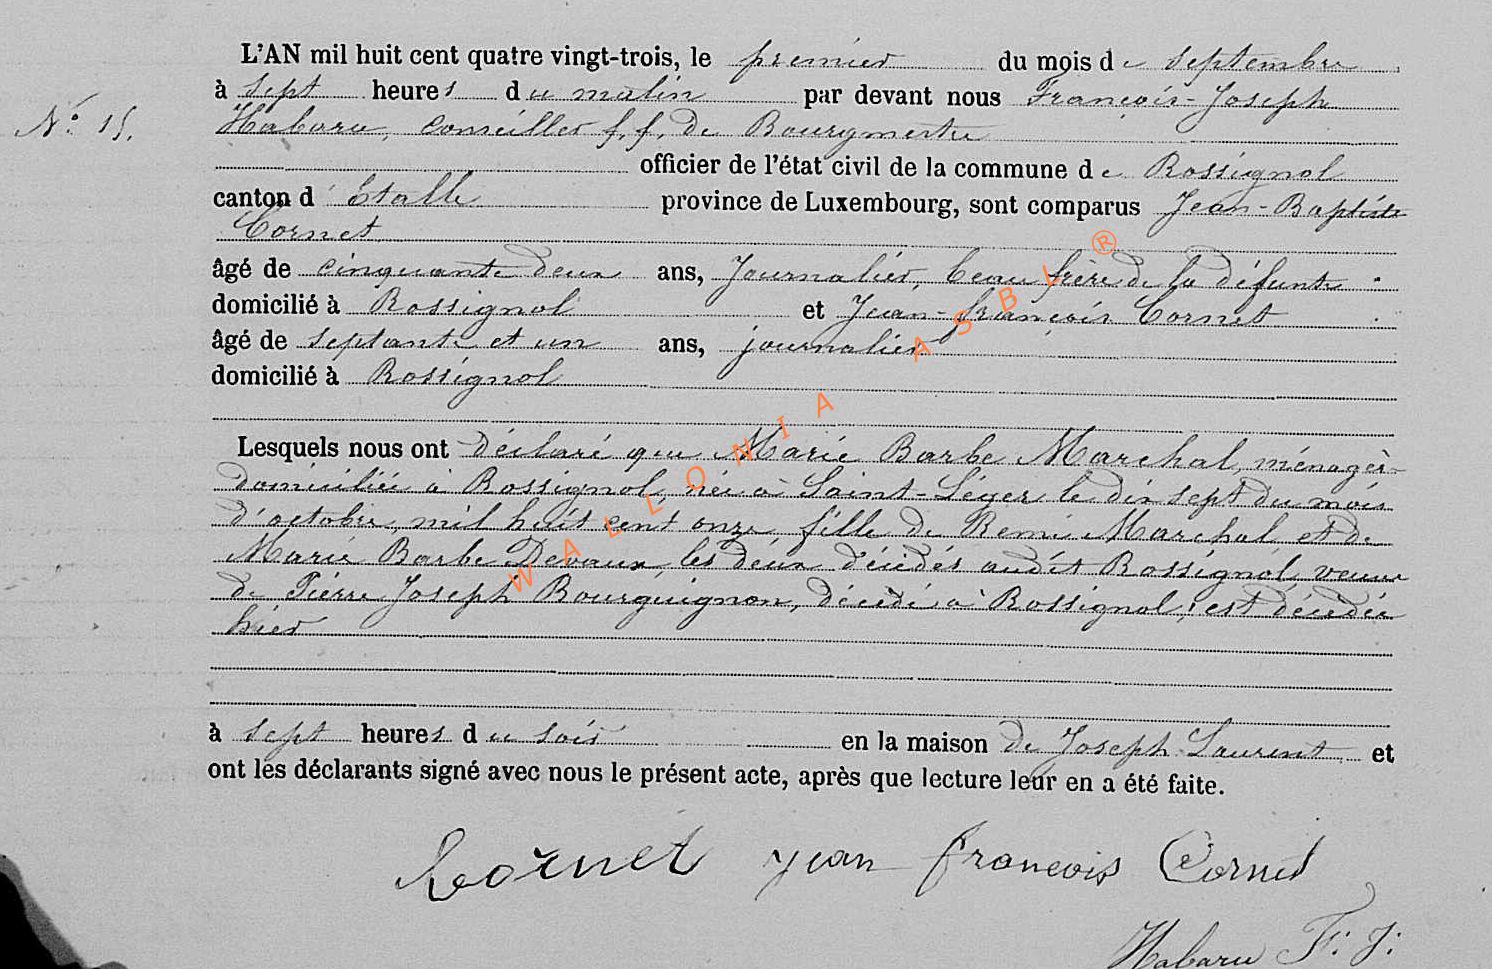 L'AN mil huit cent quatre vingt-trois, le premier du mois de septembre
à sept heures du matin par devant nous François-Joseph
N° 15.
Habaru, Conseiller f.f. de Bourgmestre
officier de l'état civil de la commune de Rossignol
canton d'Étalle province de Luxembourg, sont comparus Jean-Baptiste
Cornet
âgé de cinquante deux ans, Journalier, beau frère de la défunte
domicilié à Rossignol et Jean-François Cornet
âgé de septante et un ans, journalier
domicilié à Rossignol
Lesquels nous ont déclaré que Marie Barbe Marchal, ménagèr-
domiciliée à Rossignol, née à Saint-Léger le dix sept du mois
d'octobre mil huit cent onze fille de Remi Marchal et de
Marie Barbe Devaux, les deux décédés audit Rossignol, veuve
de Pierre Joseph Bourguignon, décédé à Rossignol, est décédée
hier
à sept heures du soir en la maison de Joseph Laurent et
ont les déclarants signé avec nous le présent acte, après que lecture leur en a été faite.
Cornet jean francois Cornet
Habaru F. J.
WALLONIA ASBL ®